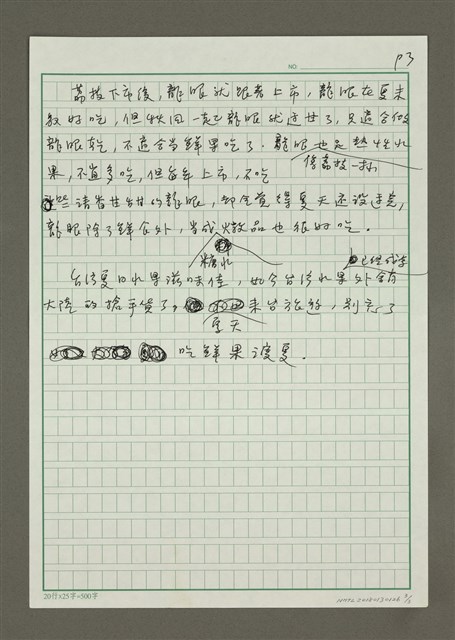 NO.
P3
荔枝下市後，龍眼就跟著上市，龍眼在夏末
較好吃，但秋風一起龍眼就過世了，只適合做
龍眼乾，不適合當鮮果吃了。龍眼也是熱性水
像荔枝一樣
果，不宜多吃，但每年上市，不吃
些諸甘甜的龍眼，卻會覺得夏天還沒過完，
龍眼除了鮮食外，當成燉品也很好吃。
糖水
已經成為
台灣夏日水果滋味佳，如今台灣水果外銷
大陸的搶手貨了，來台旅遊，別忘了
夏天
吃鮮果渡夏。
20行×25字=500字